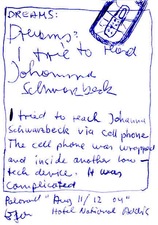 DREAMS:
Dreams:
I tried to read
Johanna
Schwarbeck
I tried to reach Johanna
Schwarbeck via cell phone
The cell phone was wrapped
and inside another low-
tech device. It was
complicated
"Aug 11/12 04"
Hotel National